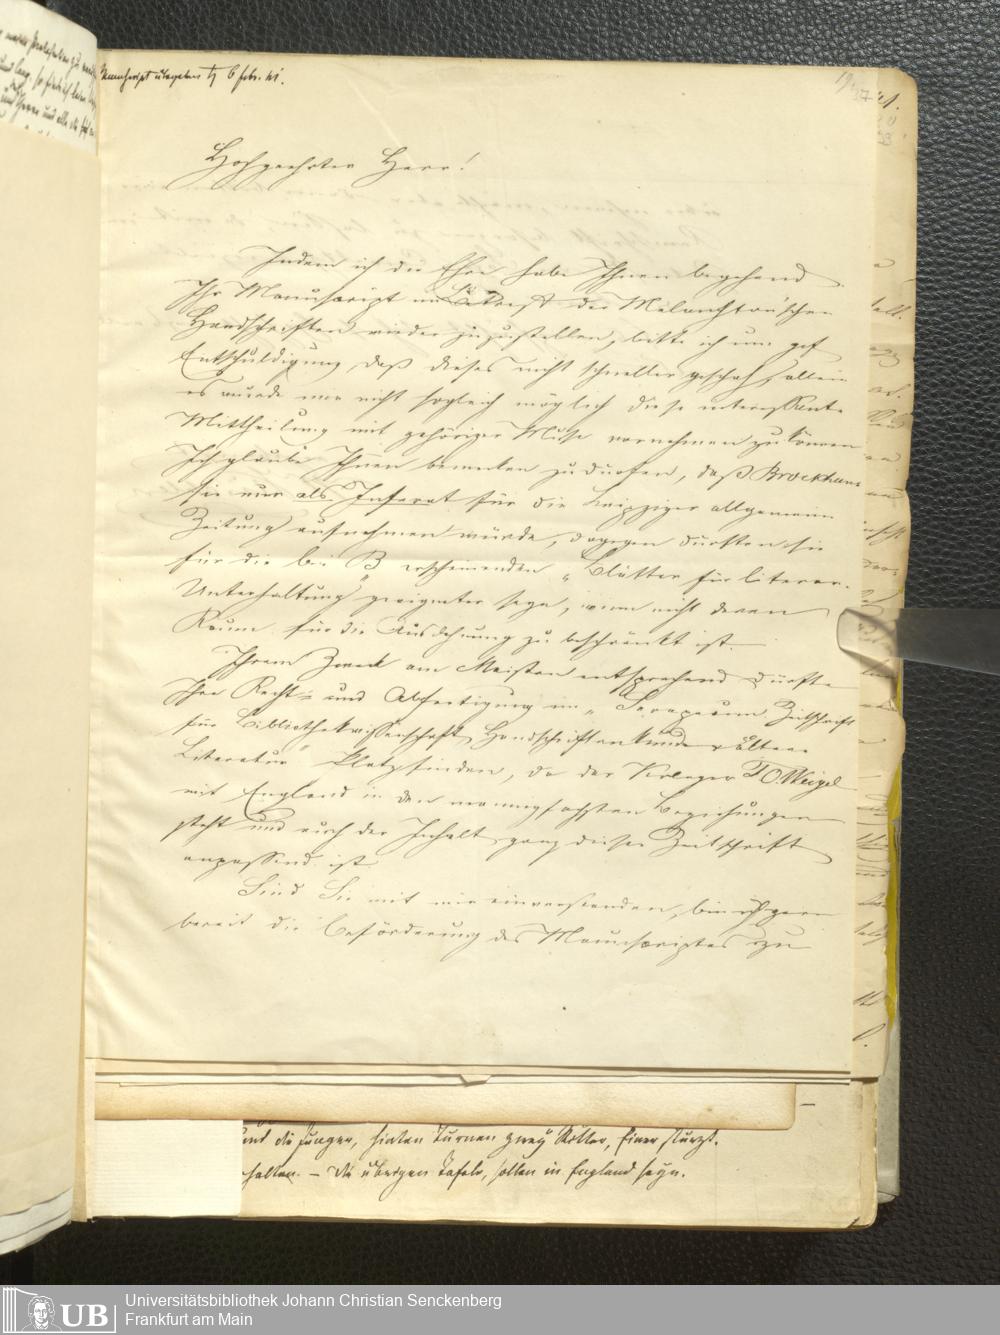 Manuscript übergeben 6 febr. 41.
Hochgeehrter Herr!
Indem ich die Ehre habe Ihnen beygehend
Ihr Manuscript in Betreff der Melanchton'schen
Handschriften wieder zuzustellen, bitte ich um gef
Entschuldigung, daß dieses nicht schneller geschah, allein
es wurde mir nicht sogleich möglich diese interessante
Mittheilung mit gehöriger Muse vornehmen zu können
Ich glaube Ihnen bemerken zu dürfen, daß Brockhaus
sie nur als Inserat für die Leipziger allgemeine
Zeitung aufnehmen würde, dagegen dürften sie
für die bei B erscheinenden „Blätter für literar.
Unterhaltung" geeigneter seyn, wenn nicht deren
Raum für die Ausdehnung zu beschränkt ist.
Ihrem Zweck am Meisten entsprechend dürfte
Ihre Recht- und Abfertigung im „Serapeum Zeitschrift
für Bibliothekwissenschaft, Handschriftenkunde u ältere
Literatur" Platz finden, da der Verleger T. O. Weigel
mit England in den mannigfachsten Beziehungen
steht und auch der Inhalt ganz dieser Zeitschrift
anpassend ist.
Sind Sie mit mir einverstanden, bin ich gern
bereit die Beförderung des Manuscriptes zu
und die Junger, hinten Turnen zwey Ritter, einer sturzt.
halten. – Die übrigen Tafeln, sollen in England seyn.
UB
Universitätsbibliothek Johann Christian Senckenberg
Frankfurt am Main